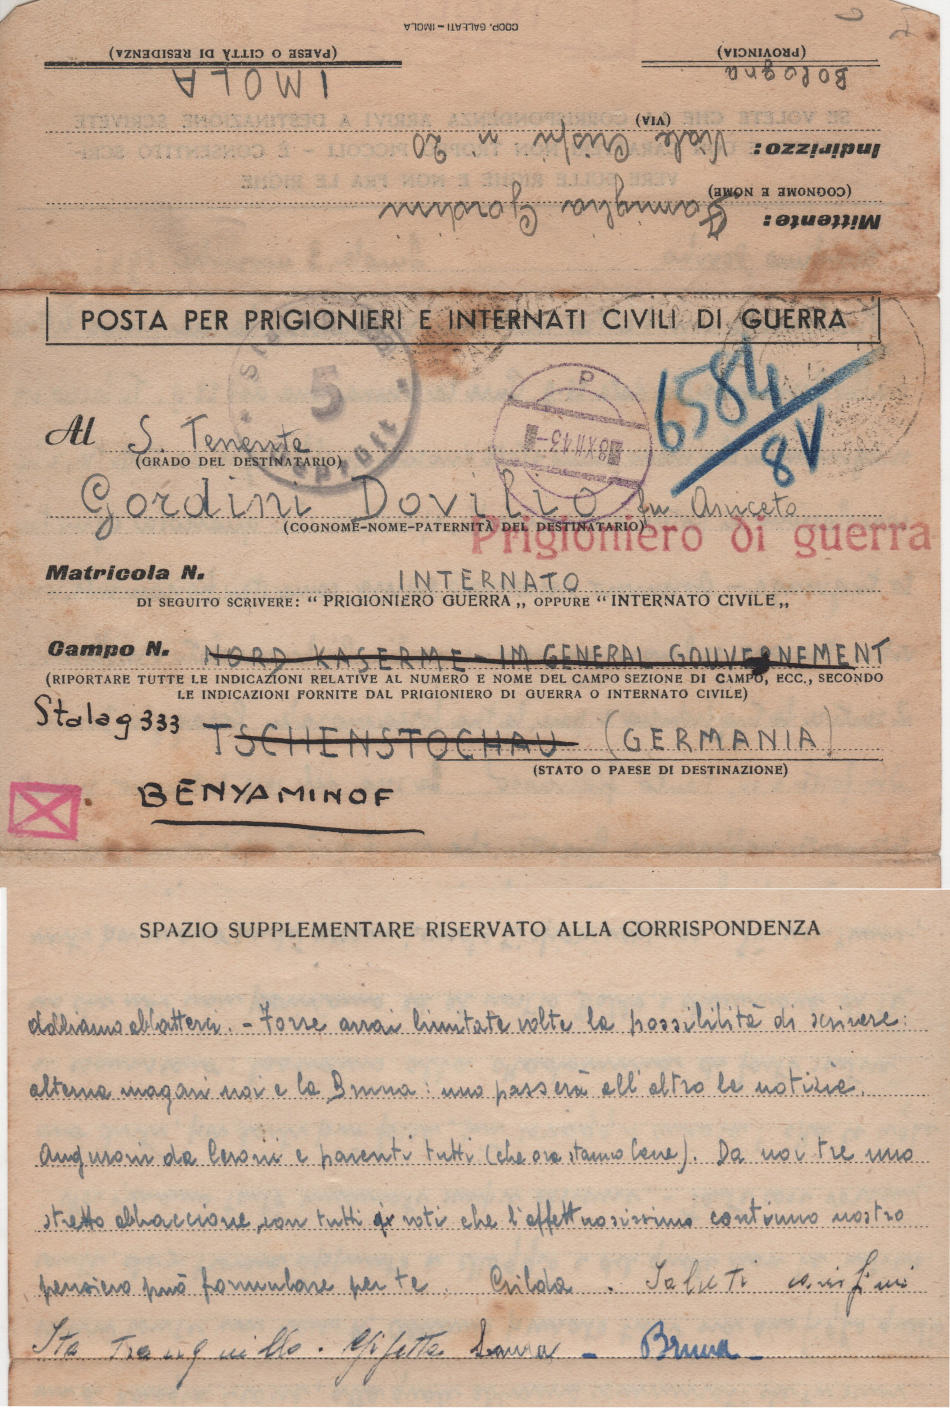 COOP. GALEATI - IMOLA
(PAESE O CITTÀ DI RESIDENZA)
(PROVINCIA)
IMOLA
Bologna
(VIA)
Indirizzo: Viale Crispi n 20
(COGNOME E NOME)
Mittente: Famiglia Gordini
POSTA PER PRIGIONIERI E INTERNATI CIVILI DI GUERRA
5
Geprüft
P
6584
8V
Al S. Tenente
(GRADO DEL DESTINATARIO)
Gordini Dovillio fu Aniceto
(COGNOME-NOME-PATERNITÀ DEL DESTINATARIO)
Prigioniero di guerra
Matricola N. INTERNATO
DI SEGUITO SCRIVERE: “ PRIGIONIERO GUERRA „ OPPURE “ INTERNATO CIVILE „
Campo N. NORD KASERME - IM GENERAL GOUVERNEMENT
(RIPORTARE TUTTE LE INDICAZIONI RELATIVE AL NUMERO E NOME DEL CAMPO SEZIONE DI CAMPO, ECC., SECONDO
LE INDICAZIONI FORNITE DAL PRIGIONIERO DI GUERRA O INTERNATO CIVILE)
Stalag 333
TSCHENSTOCHAU (GERMANIA)
(STATO O PAESE DI DESTINAZIONE)
BENYAMINOF
SPAZIO SUPPLEMENTARE RISERVATO ALLA CORRISPONDENZA
dobbiamo abbatterci. - Forse avrai limitate volte la possibilità di scrivere:
alterna magari noi e la Bruna: uno passerà all'altro le notizie.
Auguroni da Ceroni e parenti tutti (che ora stanno bene). Da noi tre uno
stretto abbraccione, con tutti i voti che l'affettuosissimo continuo nostro
pensiero può formulare per te. Gilda. Saluti
Sta tranquillo. Laura - Bruna -